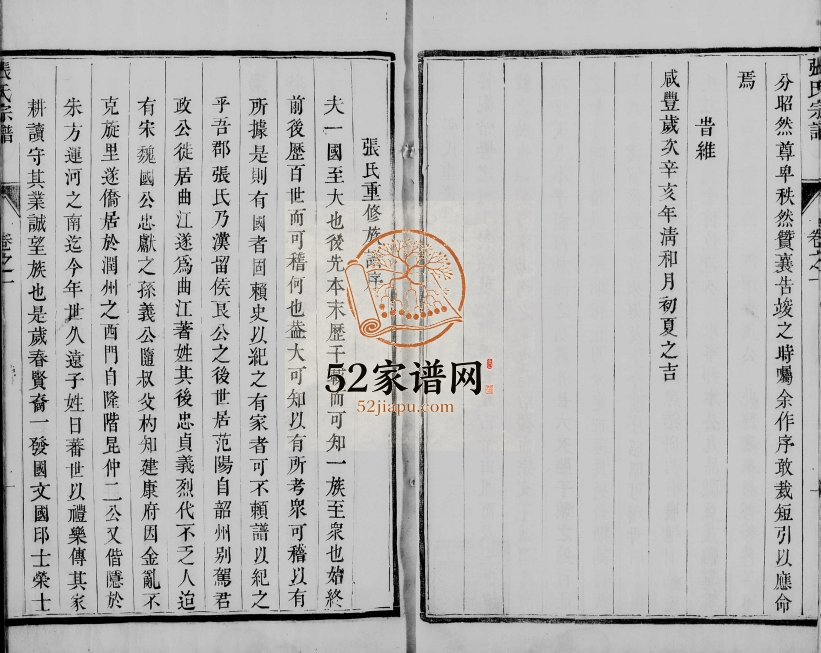 張氏宗譜
卷之一
分昭然尊卑秩然贊襄告竣之時囑余作序敢裁短引以應命
焉
旹維
咸豐歲次辛亥年淸和月初夏之吉
張氏重修族譜序
夫一國至大也後先本末歷千載而可知一族至衆也始終
前後歷百世而可稽何也葢大可知以有所考衆可稽以有
所據是則有國者固賴史以紀之有家者可不賴譜以紀之
乎吾郡張氏乃漢留侯良公之後世居范陽自韶州别駕君
政公徙居曲江遂爲曲江著姓其後忠貞義烈代不乏人迨
有宋魏國公忠獻之孫義公隨叔父杓知建康府因金亂不
克旋里遂僑居於潤州之西門自隆階昆仲二公又偕隱於
朱方運河之南迄今年世久遠子姓日蕃世以禮樂傳其家
耕讀守其業誠望族也是歲春賢裔一發國文國印士榮士
張氏宗譜
卷之一
52家谱网
52jiapu.com